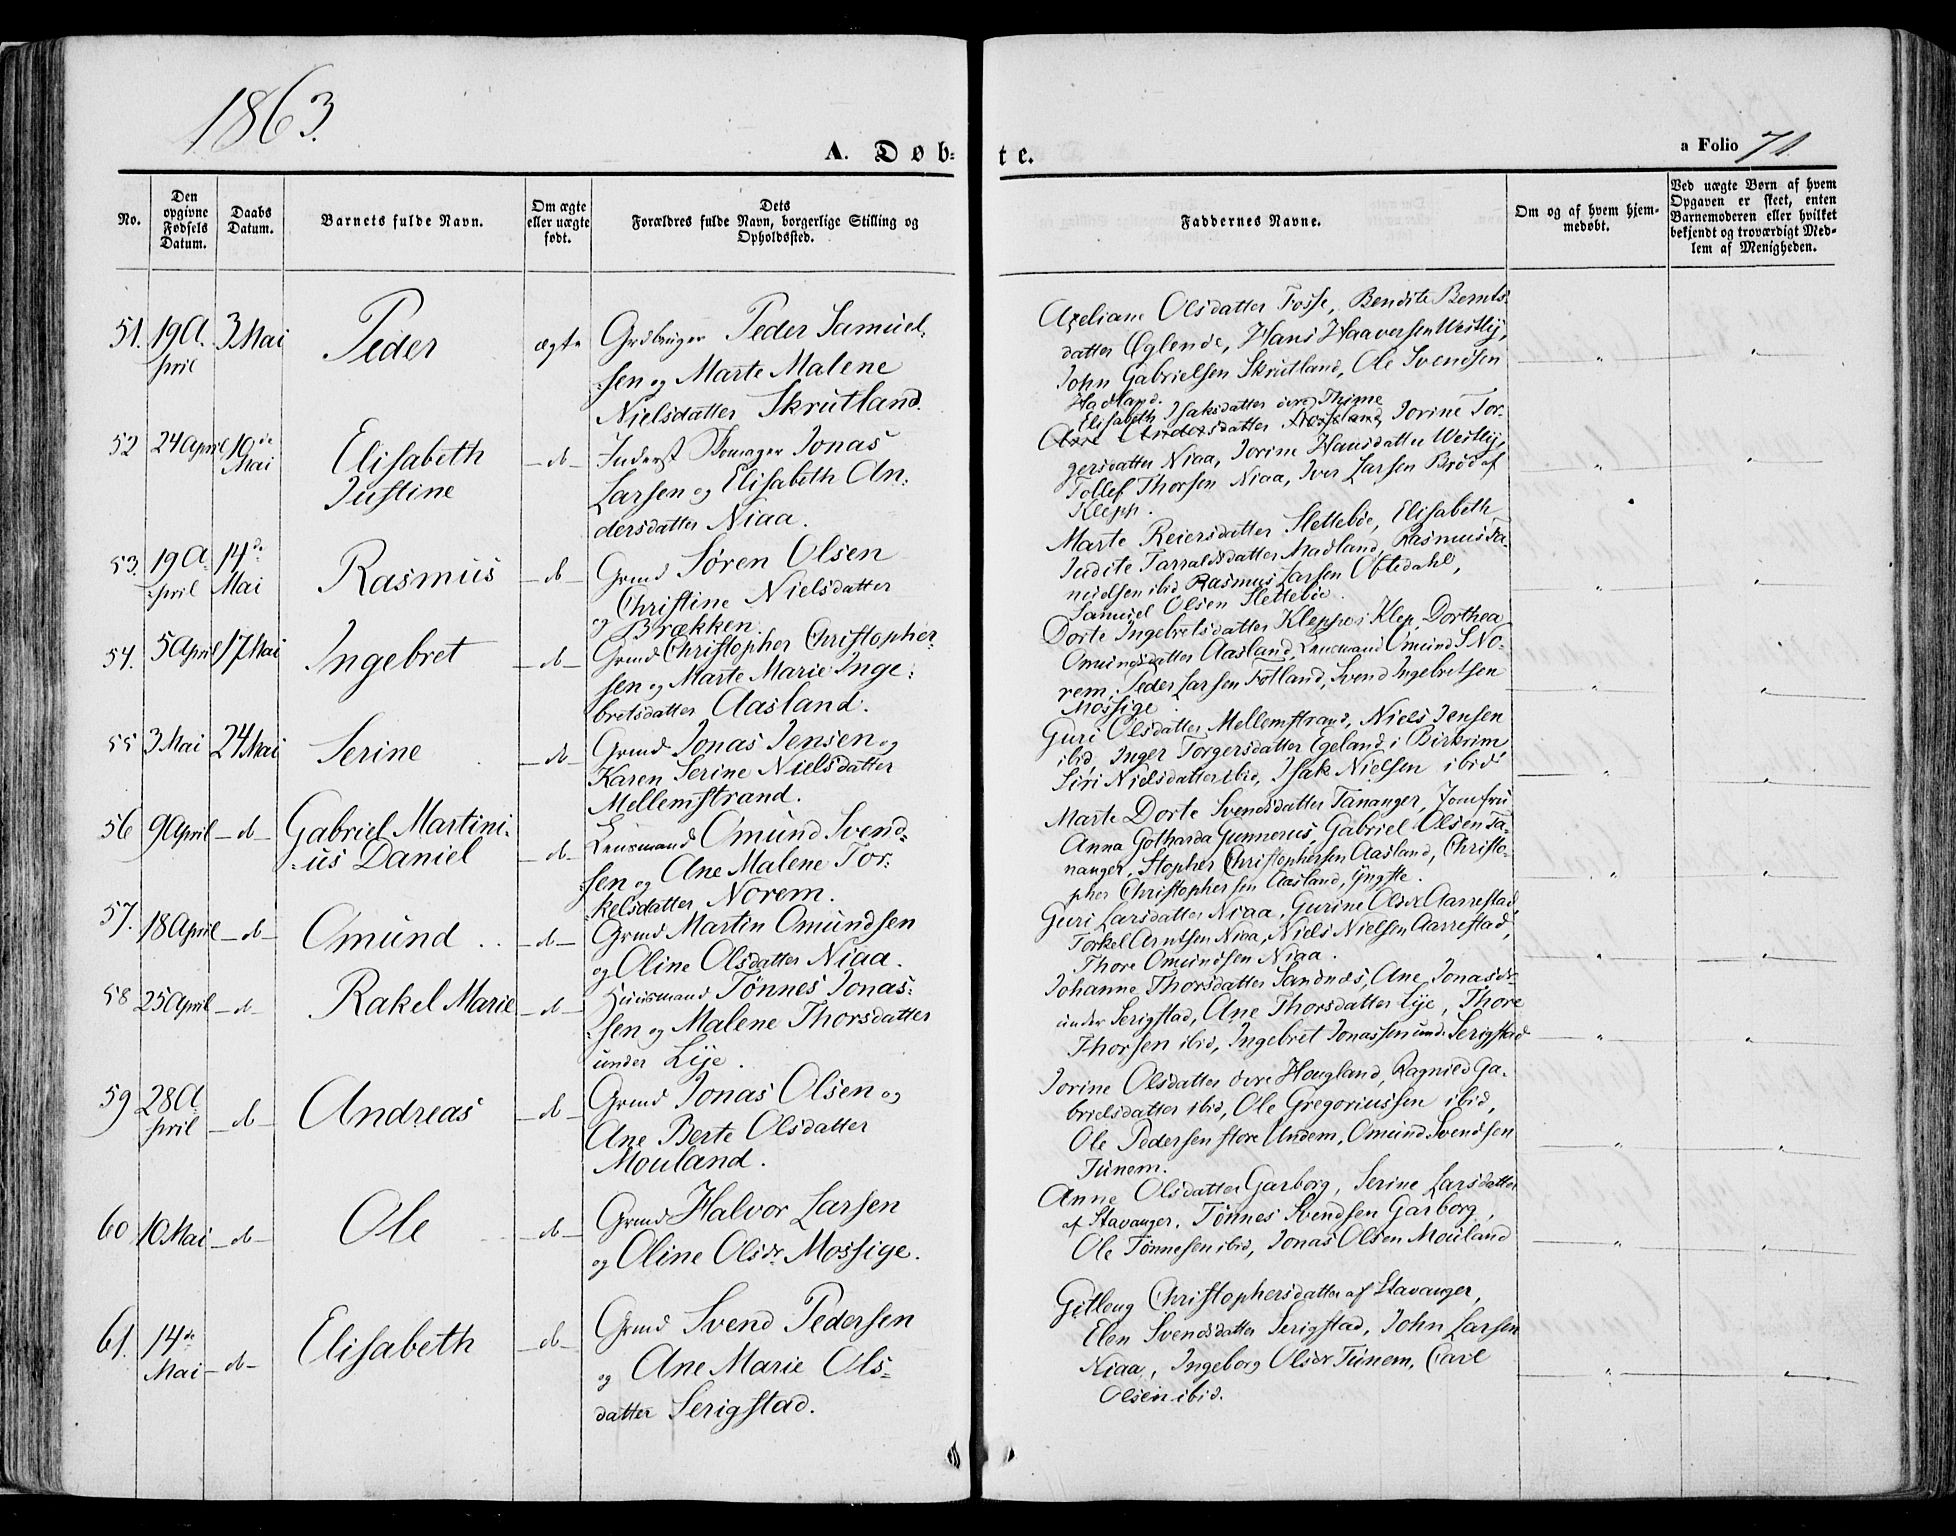 1863.
A. Døb-
te.
a Folio 71.
No.
Den opgivne Fødsels Datum.
Daabs Datum.
Barnets fulde Navn.
Om ægte eller uægte født.
Dets Forældres fulde Navn, borgerlige Stilling og Opholdssted.
Faddernes Navne.
Om og af hvem hjemmedøbt.
Ved uægte Børn af hvem Opgaven er skeet, enten Barnemoderen eller hvilket bekjendt og troværdigt Medlem af Menigheden.
51. 19 A:pril 3 Mai Peder ægte
Grdbruger Peder Samuel-
sen og Marte Malene
Nielsdatter Skrutland.
Axeliane Olsdatter Fosse, Bendite Bernts-
datter Øglende, Hans Haaversen Westly,
John Gabrielsen Skrutland, Ole Svendsen
Hadland.
52 24 April 10de Mai Elisabeth
Justine -do-
Inderst Skomager Jonas
Larsen og Elisabeth An:
dersdatter Niaa.
Elisabeth Isaksdatter øvre Thime
Andersdatter Jorine Tor-
gersdatter Niaa, Jorine Hansdatter Westly,
Tollef Thorsen Niaa, Iver Larsen Brød af
Klepp.
53. 19 A:pril 14de Mai Rasmus -do-
Grmd Søren Olsen
og Christine Nielsdatter
Brækken.
Marte Reiersdatter Slettebøe, Elisabeth
Judite Tarraldsdatter Madland, Rasmus Ta-
nielsen ibid Rasmus Larsen Oftedahl,
Samuel Olsen Slettebøe.
54. 5 April 17 Mai Ingebret -do-
Grmd Christopher Christopher-
sen og Marte Marie Inge:
bretsdatter Aasland.
Dorte Ingebretsdatter Kleppe i Klep, Dorthea
Omundsdatter Aasland, Lensmand Omund S No-
rem, Peder Larsen Fotland, Svend Ingebretsen
Mossige.
55 3 Mai 24 Mai Serine -do-
Grmd Jonas Jensen og
Karen Serine Nielsdatter
Mellemstrand.
Guri Olsdatter Mellemstrand, Niels Jensen
ibid, Inger Torgersdatter Egeland i Birkrim,
Siri Nielsdatter ibid, Isak Nielsen ibid
56 9 April -do- Gabriel Martini-
-us Daniel -do-
Lensmand Omund Svend-
sen og Ane Malene Tor-
kelsdatter Norem.
Marte Dorte Svendsdatter Tananger, Jomfru
Anna Gotharda Gunnerus, Gabriel Olsen Ta-
nanger, Stopher Christophersen Aasland, Christo-
pher Christophersen Aasland, yngste.
57. 18 April -do- Omund -do-
Grmd Martin Omundsen
og Oline Olsdatter Niaa.
Guri Larsdatter Niaa, Gurine Olsdr Aarrestad,
Torkel Arntsen Niaa, Niels Nielsen Aarrestad,
Thore Omundsen Niaa.
58 25 April -do- Rakel Marie -do-
Huusmand Tønnes Jonas-
sen og Malene Thorsdatter
under Lije.
Johanne Thorsdatter Sandnes, Ane Jonasdr
under Serigstad, Ane Thorsdatter Lije, Thore
Thorsen ibid, Ingebret Jonassen und Serigstad
59 28 A:pril -do- Andreas -do-
Grmd Jonas Olsen og
Ane Berte Olsdatter
Mouland.
Jorine Olsdatter øvre Hougland, Ragnild Ga-
brielsdatter ibid, Ole Gregoriussen ibid,
Ole Pedersen store Undem, Omund Svendsen
Tunem.
60 10 Mai -do- Ole -do-
Grmd Halvor Larsen
og Oline Olsdr Mossige.
Anne Olsdatter Garborg, Serine Larsdatter
af Stavanger, Tønnes Svendsen Garborg,
Ole Tønnesen ibid, Jonas Olsen Mouland
61. 14de Mai -do- Elisabeth -do-
Grmd Svend Pedersen
og Ane Marie Ols-
datter Serigstad.
Gitloug Christophersdatter af Stavanger,
Elen Svendsdatter Serigstad, John Larsen
Niaa, Ingeborg Olsdr Tunem, Carl
Olsen ibid.